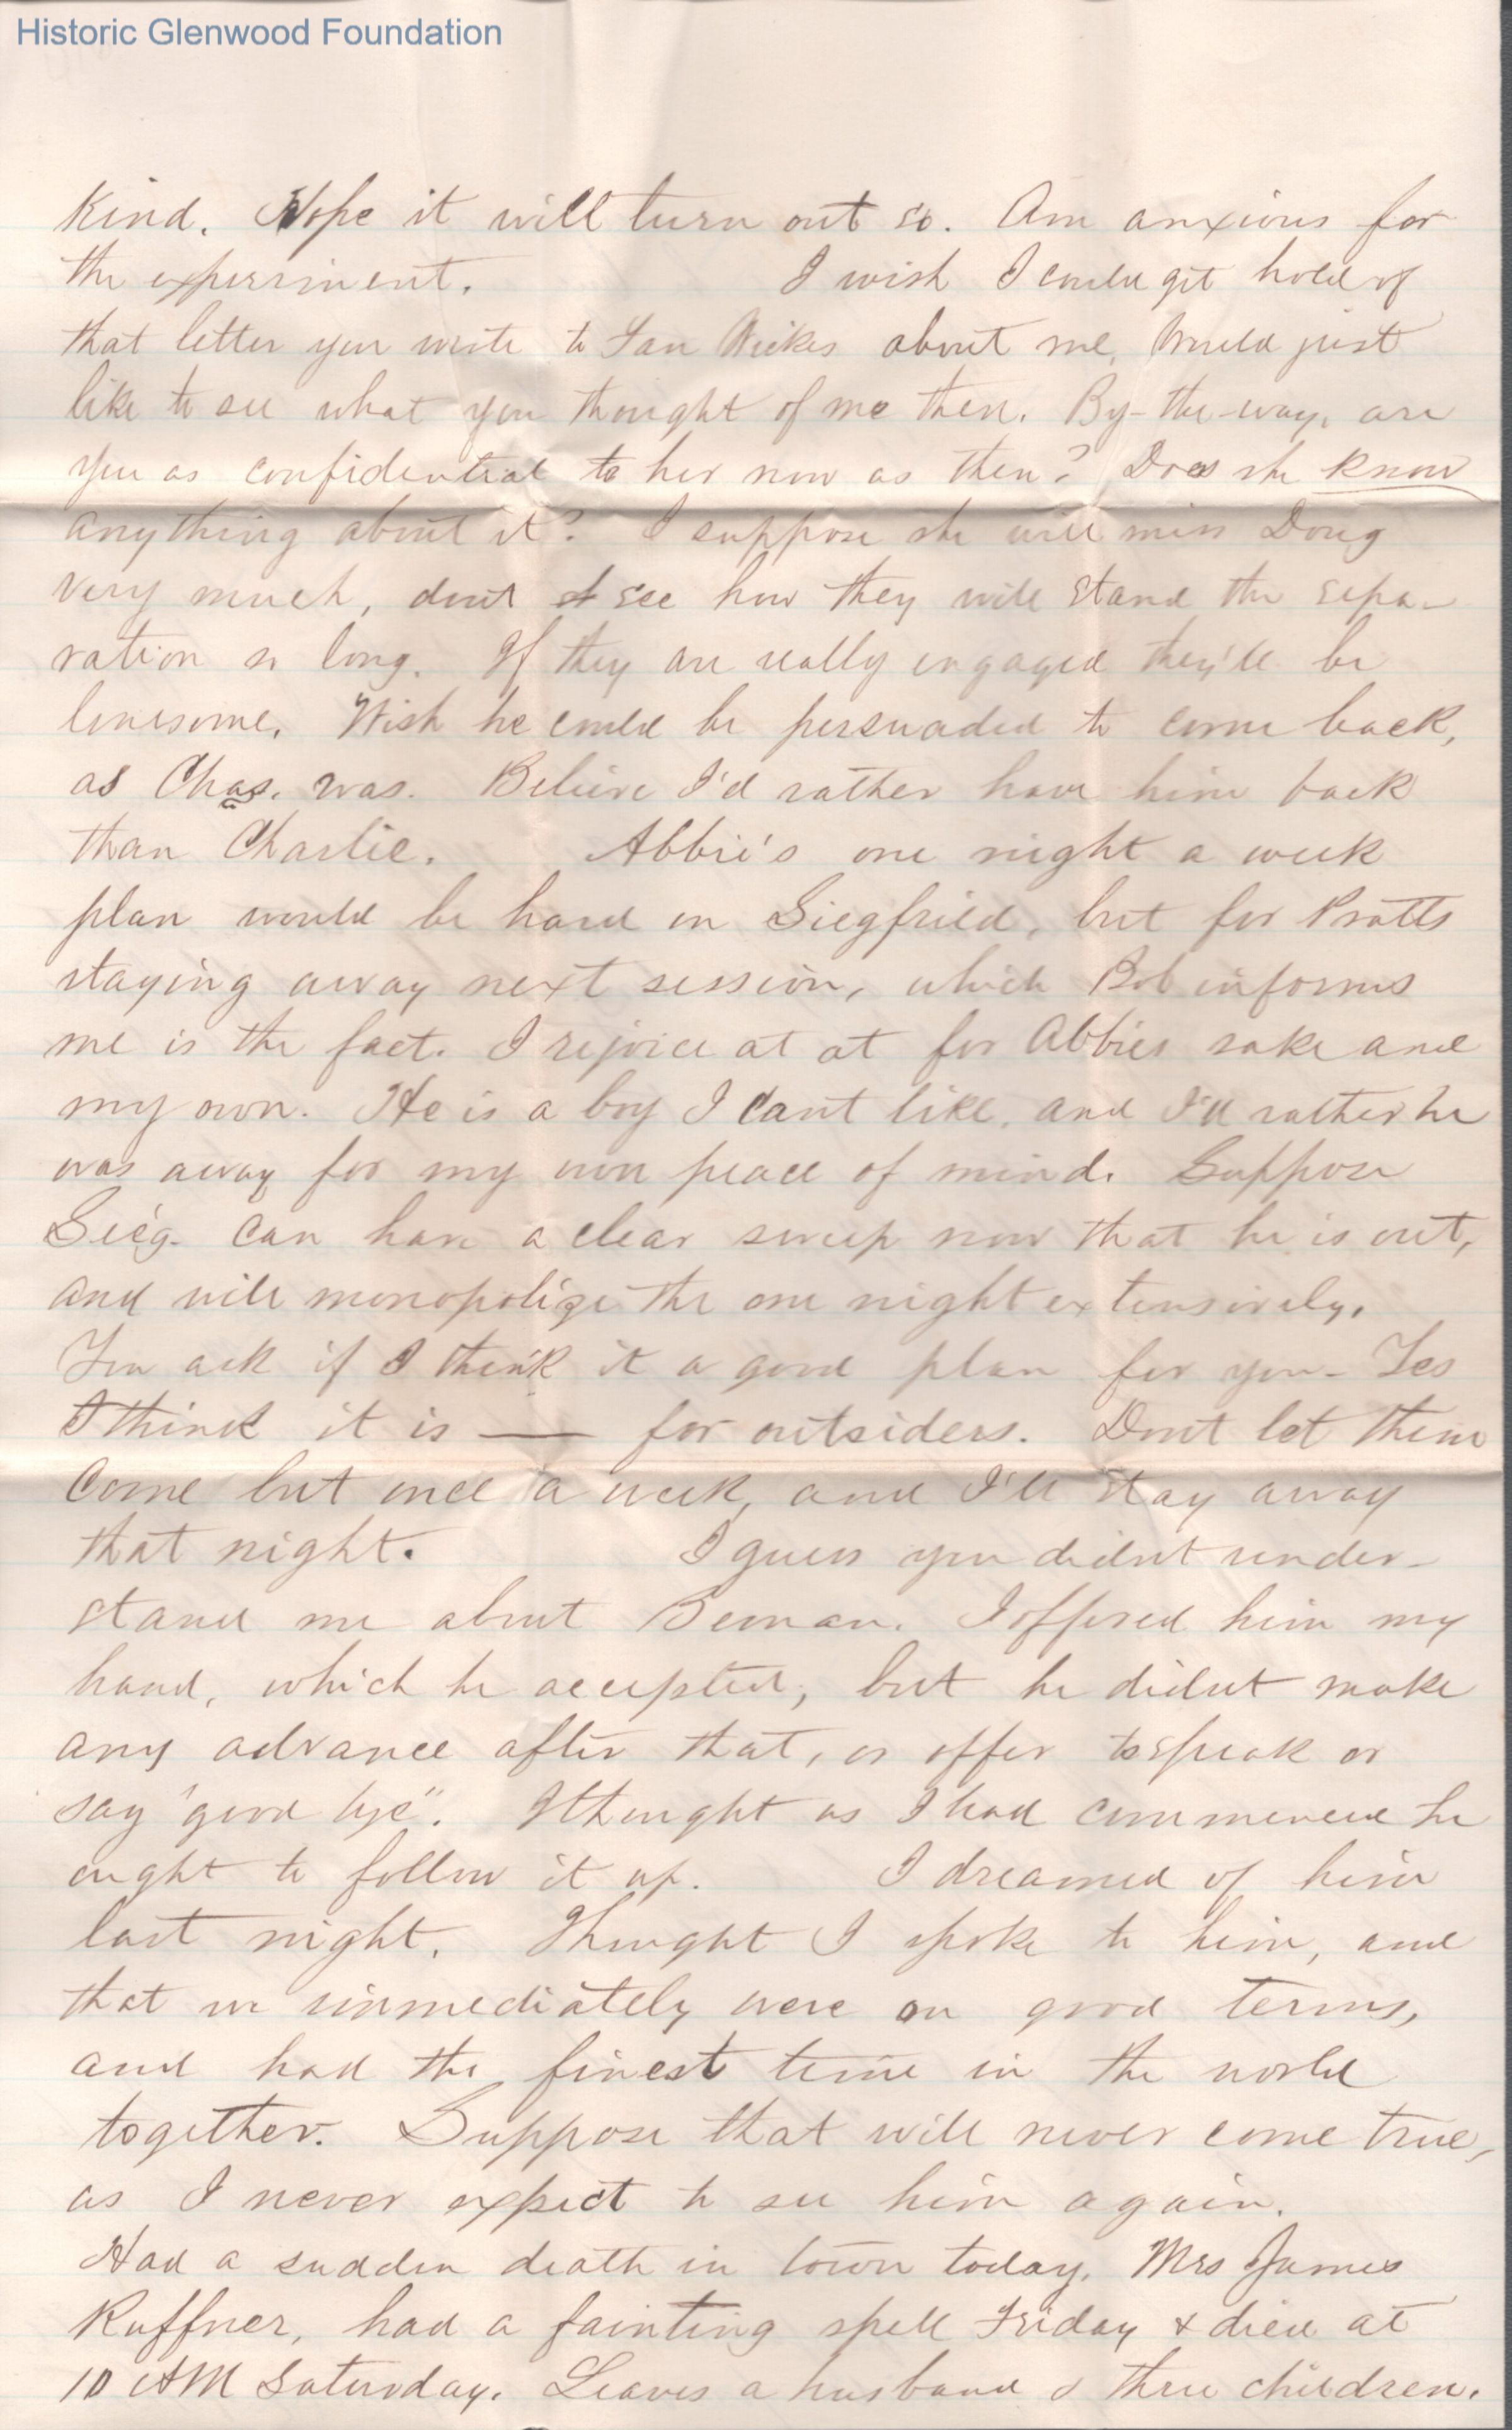 Historic Glenwood Foundation
Kind. Hope it will turn out so. Am anxious for
the experiment. I wish I could get hold of
that letter you wrote to Fan Wickes about me, Would just
like to see what you thought of me then. By-the-way, are
you as confidential to her now as then? Does she know
anything about it? I suppose she will miss Doug
very much, dont see how they will stand the sepa-
ration so long. If they are really engaged they'll be
lonesome. Wish he could be persuaded to come back,
as Chas. was. Believe I'd rather have him back
than Charlie. Abbie's one night a week
plan would be hard on Siegfried, but for Pratts
staying away next session, which Bob informs
me is the fact. I rejoice at at for Abbies sake and
my own. He is a boy I cant like, and I'd rather he
was away for my own peace of mind. Suppose
Sieg. can have a clear sweep now that he is out,
and will monopolize the one night extensively.
You ask if I think it a good plan for you - Yes
I think it is — for outsiders. Dont let them
come but once a week, and I'll stay away
that night. I guess you didnt under-
stand me about Beman. I offered him my
hand, which he accepted, but he didnt make
any advance after that, or offer to speak or
say "good bye". I thought as I had commenced he
ought to follow it up. I dreamed of him
last night. Thought I spoke to him, and
that we immediately were on good terms,
and had the finest time in the world
together. Suppose that will never come true,
as I never expect to see him again.
Had a sudden death in town today. Mrs James
Ruffner, had a fainting spell Friday & died at
10 AM Saturday. Leaves a husband & three children.